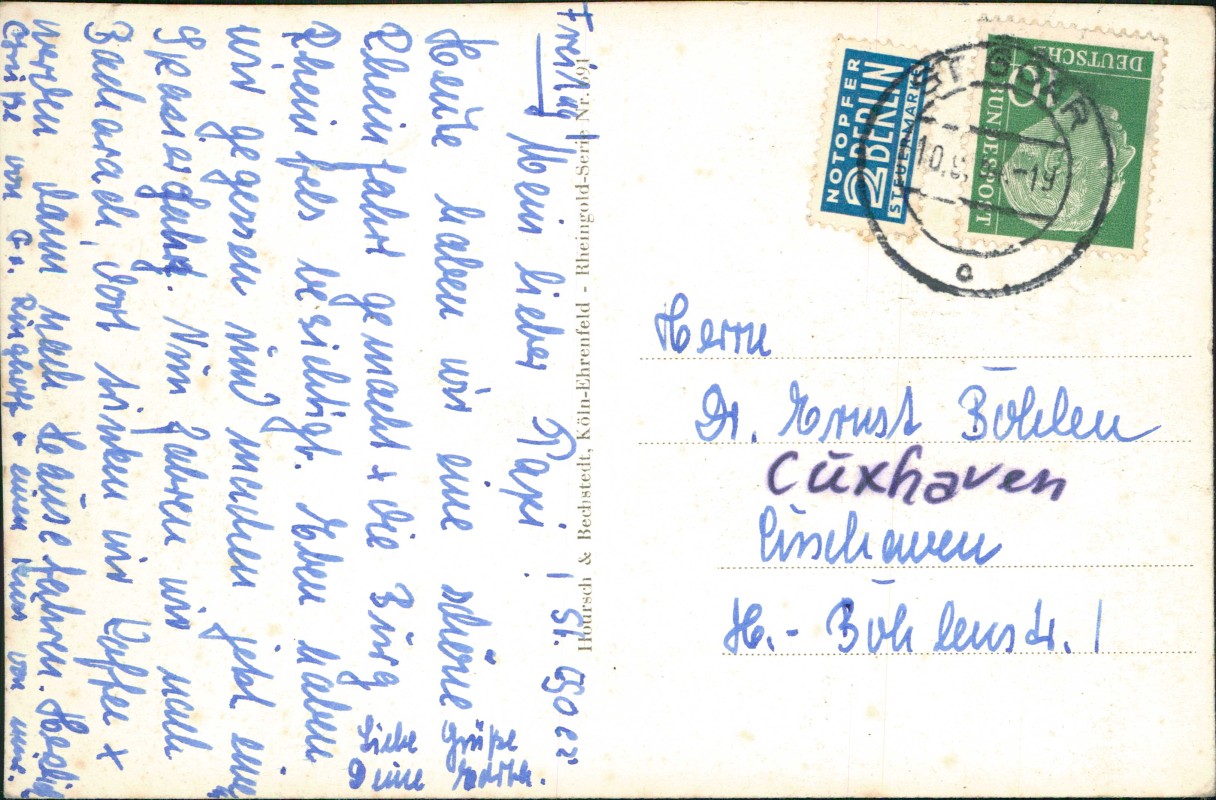 Freitag
Mein lieber Papi! St. Goar
Heute haben wir eine schöne
Rheinfahrt gemacht + die Burg
Rheinfels besichtigt. Eben haben
wir gegessen und machen jetzt einen
Spaziergang. Nun fahren wir nach
Bacharach, dort trinken wir Kaffee +
werden dann nach Hause fahren. Herzliche
Grüße von + einen Kuss von mir.
Liebe Grüße
Deine
Hoursch & Bechstedt, Köln-Ehrenfeld - Rheingold-Serie Nr. 591
NOTOPFER
2 BERLIN
STEUERMARKE
DEUTSCHE
BUNDESPOST
10
ST. GOAR
Herrn
Dr. Ernst Bohlen
Cuxhaven
Cuxhaven
H.-Bohlenstr. 1